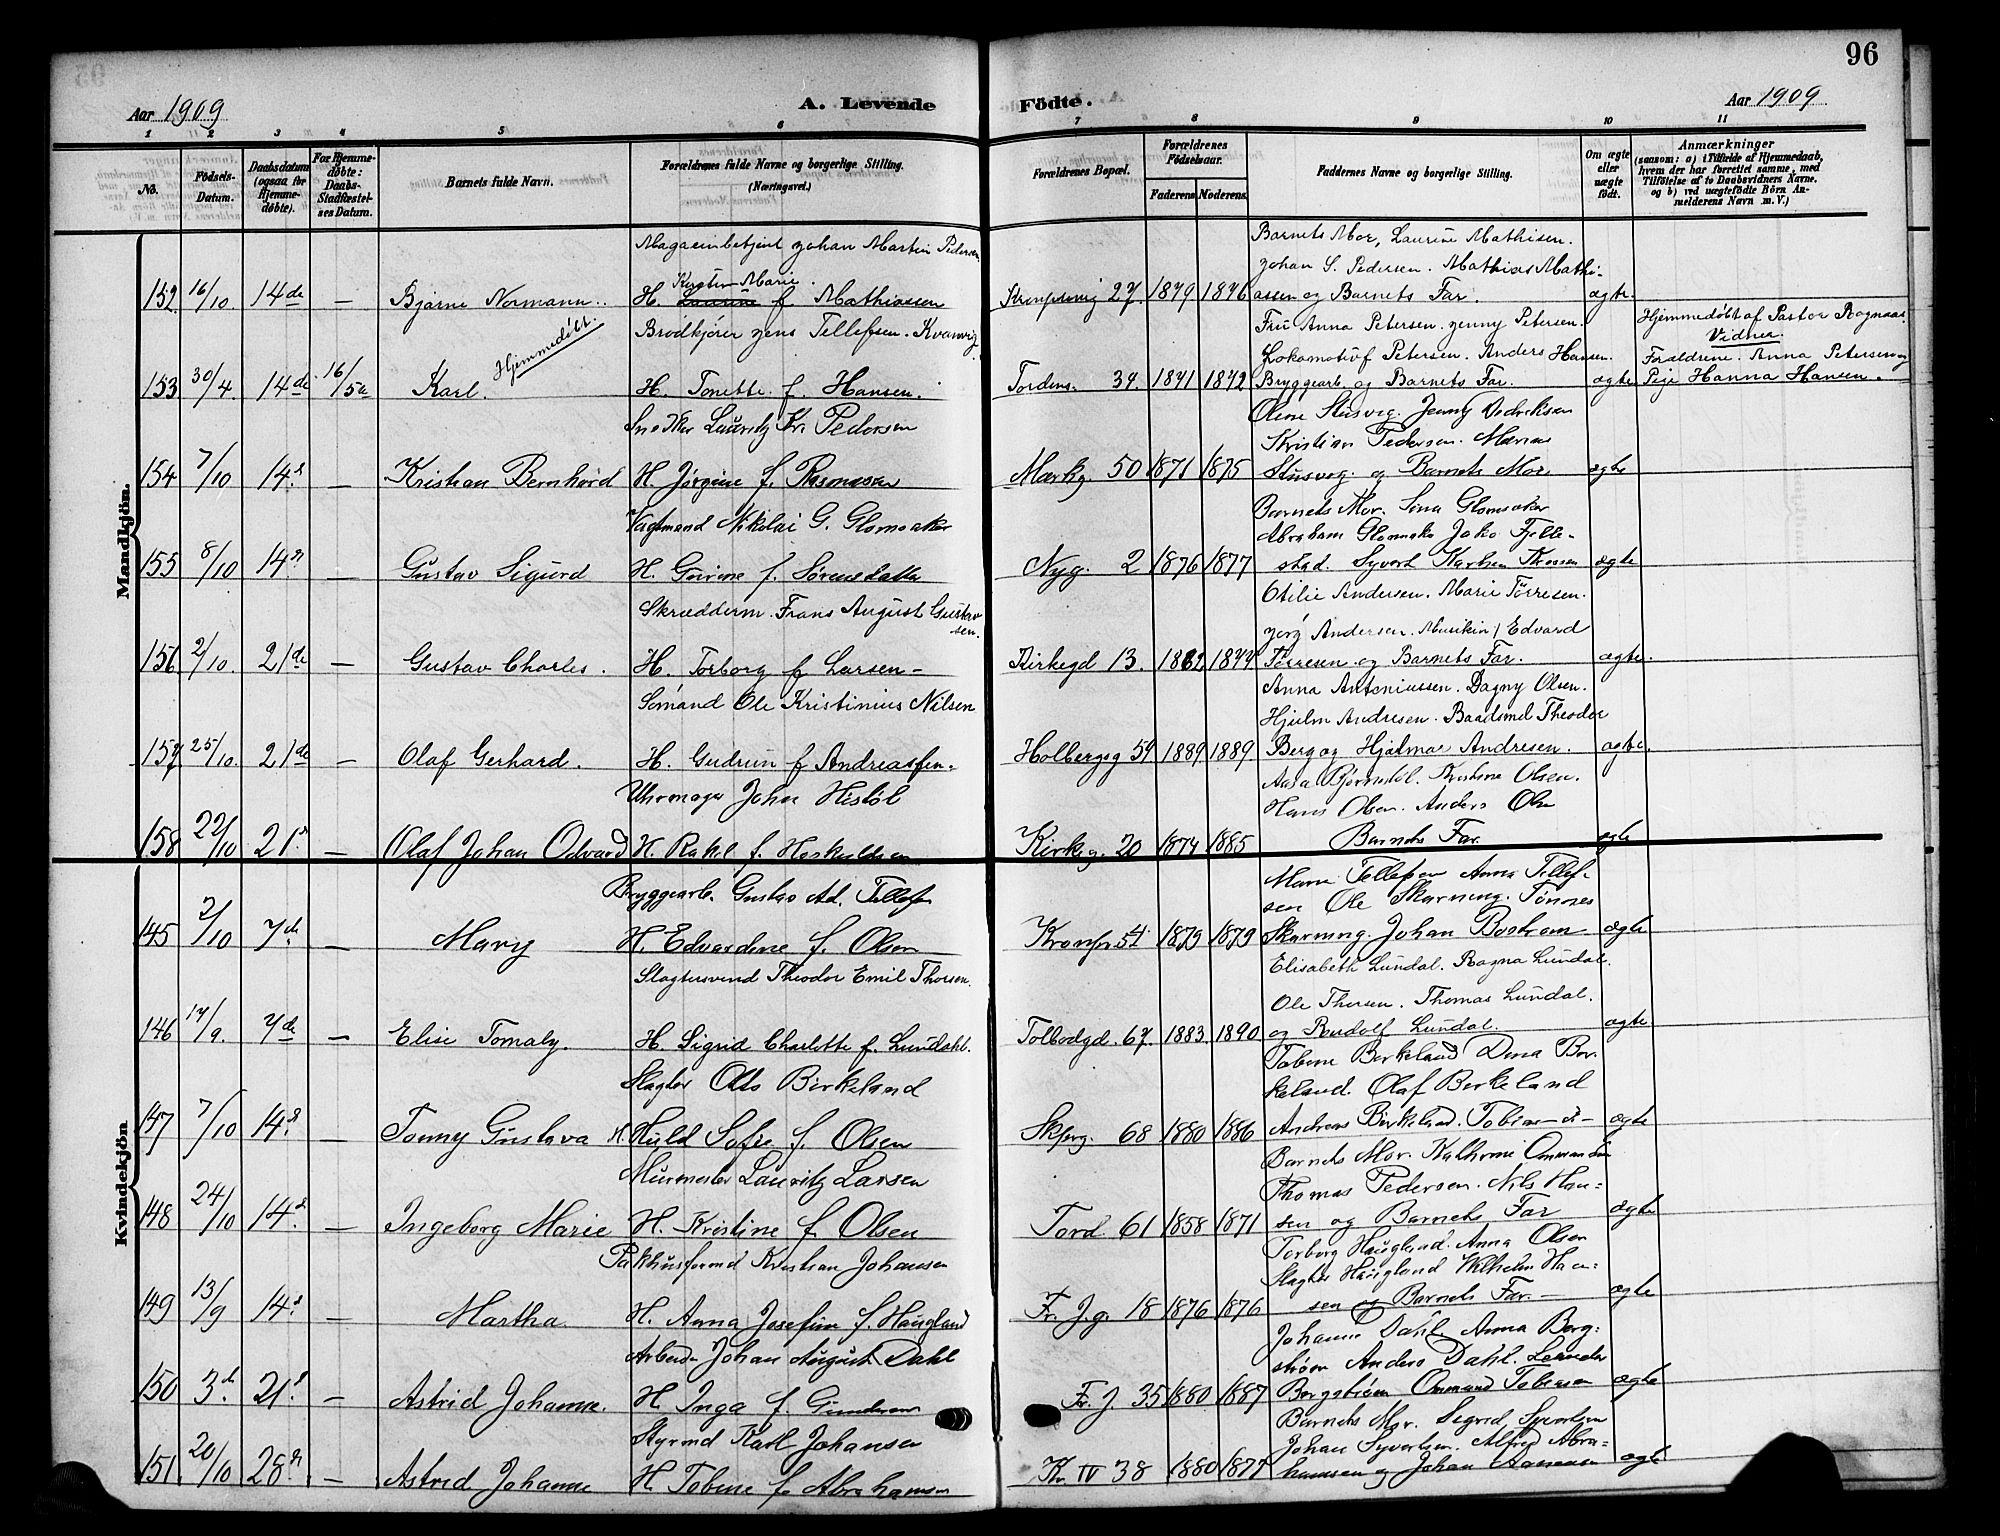 96
Aar 1909
A. Levende
Födte.
Aar 1909
1 2 3 4 5 6 7 8 9 10 11
No.
Födsels-Datum.
Daabsdatum (ogsaa for Hjemme-døbte).
For Hjemme-døbte: Daabs-Stadfæstel-ses Datum.
Barnets fulde Navn.
Forældrenes fulde Navne og borgerlige Stilling. (Næringsvei.)
Forældrenes Bopæl.
Forældrenes Födselsaar.
Faderens Moderens.
Faddernes Navne og borgerlige Stilling.
Om ægte eller uægte födt.
Anmærkninger
(saasom: a) i Tilfælde af Hjemmedaab, hvem der har forrettet samme, med Tilföielse af to Daabsvidners Navne. og b) ved uægtefödte Börn An-melderens Navn m. V.)
Mandkjön.
Magasinbetjent Johan Martin Pedersen
Barnets Mor, Laurine Mathisen.
Kirsten Marie.
Johan S. Pedersen. Mathias Mathi-
152 16/10 14de — Bjarne Normann. H. Laurine f Mathiassen 27. 1879 1876 assen og Barnets Far. ægte.
Brödkjörer Jens Tellefsen. Kvamvig
Fru Anna Petersen. Jenny Petersen.
Hjemmedöbt af Pastor Rognaas.
Vidner
Hjemmedöbt.
Lokomotivf Petersen. Anders Hansen.
Forældrene. Anna Petersen og
153 30/4 14de 16/5 Karl. H. Tonette f. Hansen. Tordens. 37. 1871 1872 Bryggearb. og Barnets Far. ægte Pige Hanna Hansen.
Snedker Lauritz Kr. Pedersen
Oline Stusvig. Jenny Dedriksen
Kristian Pedersen. Marius
154 7/10 14. — Kristian Bernhard H. Jörgine f. Rasmussen Markg. 50 1871 1875 Stusvig og Barnets Mor. ægte
Vagtmand Nikolai G. Glomsaker
Barnets Mor. Sina Glomsaker
Abraham Glomsaker
155 8/10 14. — Gustav Sigurd H. Gurine f. Sörensdatter Nyg. 2 1876 1877 stad. Syvert ægte
Skrædderm. Frans August Gustavsen.
Otilie Andersen. Marie Törresen.
Jörg Andersen. Edvard
156 2/10. 21de — Gustav Charles. H. Torborg f Larsen Kirkegd 13. 1882 1877 Törresen og Barnets Far. ægte.
Sömand Ole Kristinius Nilsen
Anna Antoniussen. Dagny Olsen.
Hjulm Andresen. Baadsmd Theodor
157 25/10. 21de — Olaf Gerhard. H. Gudrun f Andreassen. Holbergsg 59 1889 1889 Berg og Hjalmar Andresen. ægte.
Uhrmager Johan Histöl
Kristine Olsen.
Hans Olsen. Anders Olsen
158 22/10 21. — Olaf Johan Odvard H. Rakel f. Kirkeg. 20 1874 1885 Barnets Far. ægte
Kvindekjön
Bryggearb. Gustav Ad. Tellefsen
Marie Tellefsen Anna Tellef-
sen Ole Skarning. Tönnes
145 2/10 7de — Mary H. Edvardine f. Olsen Kronpr. 54 1879 1879 Skarning. Johan Bostrøm ægte
Slagtersvend Theodor Emil Thorsen.
Elisabeth Lundal. Ragna Lundal.
Ole Thorsen. Thomas Lundal.
146 17/9. 7de — Elise Tomaly. H. Sigrid Charlotte f. Lundahl. Tolbodgd. 67. 1883. 1890 og Rudolf Lundal. ægte
Slagter Otto Birkeland
Tobine Birkeland Dina Bir-
keland. Olaf Birkeland
147 7/10 14. — Tonny Gustava H. Huld Sofie f. Olsen Skjerg. 68 1880 1886 Andreas Birkeland. Tobias ægte
Murmester Lauritz Larsen
Barnets Mor. Kathrine
Thomas Pedersen. Nils Han-
148 24/10 14. — Ingeborg Marie H. Kristine f. Olsen Tord. 61 1858 1871 sen og Barnets Far ægte
Pakhusformd Kristian Johansen
Torborg Haugland. Anna Olsen
Slagter Haugland Wilhelm Han-
149 13/9 14. — Martha. H. Anna Josefine f. Haugland Fr. J. g. 18 1876 1876 sen og Barnets Far. — ægte
Arbeider Johan August Dahl
Johanne Dahl. Anna Berg-
ström Anders Dahl.
150 3. 21. — Astrid Johanne. H. Inga f. Gundersen Fr. J. 35 1880. 1887 Bergström Ommund Tobiassen ægte
Styrmd Karl Johansen
Barnets Mor. Sigrid Syvertsen
Johan Syvertsen. Alfred Abra-
151 20/10 28. — Astrid Johanne H. Tobine f. Abrahamsen Kr. IV 38 1880 1877 hamsen og Johan ægte